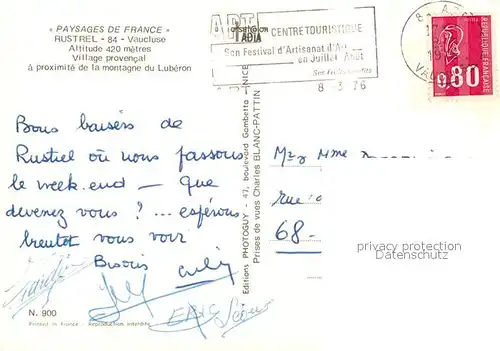 « PAYSAGES DE FRANCE »
RUSTREL - 84 - Vaucluse
Altitude 420 mètres
Village provençal
à proximité de la montagne du Lubéron
APT
CENTRE TOURISTIQUE
Son Festival d'Artisanat d'Art
en Juillet Août
8 - 3 76
0,80
REPUBLIQUE FRANÇAISE
Bons baisers de
Rustrel où nous passons
le week.end — que
devenez vous ? ... espérons
bientot vous voir
Bisous
ERIC
N. 900
Printed in France - Reproduction interdite
Editions PHOTOGUY - 47, boulevard Gambetta - NICE
Prises de vues Charles BLANC-PATTIN
Mr & Mme
rue
68 -
privacy protection
Datenschutz